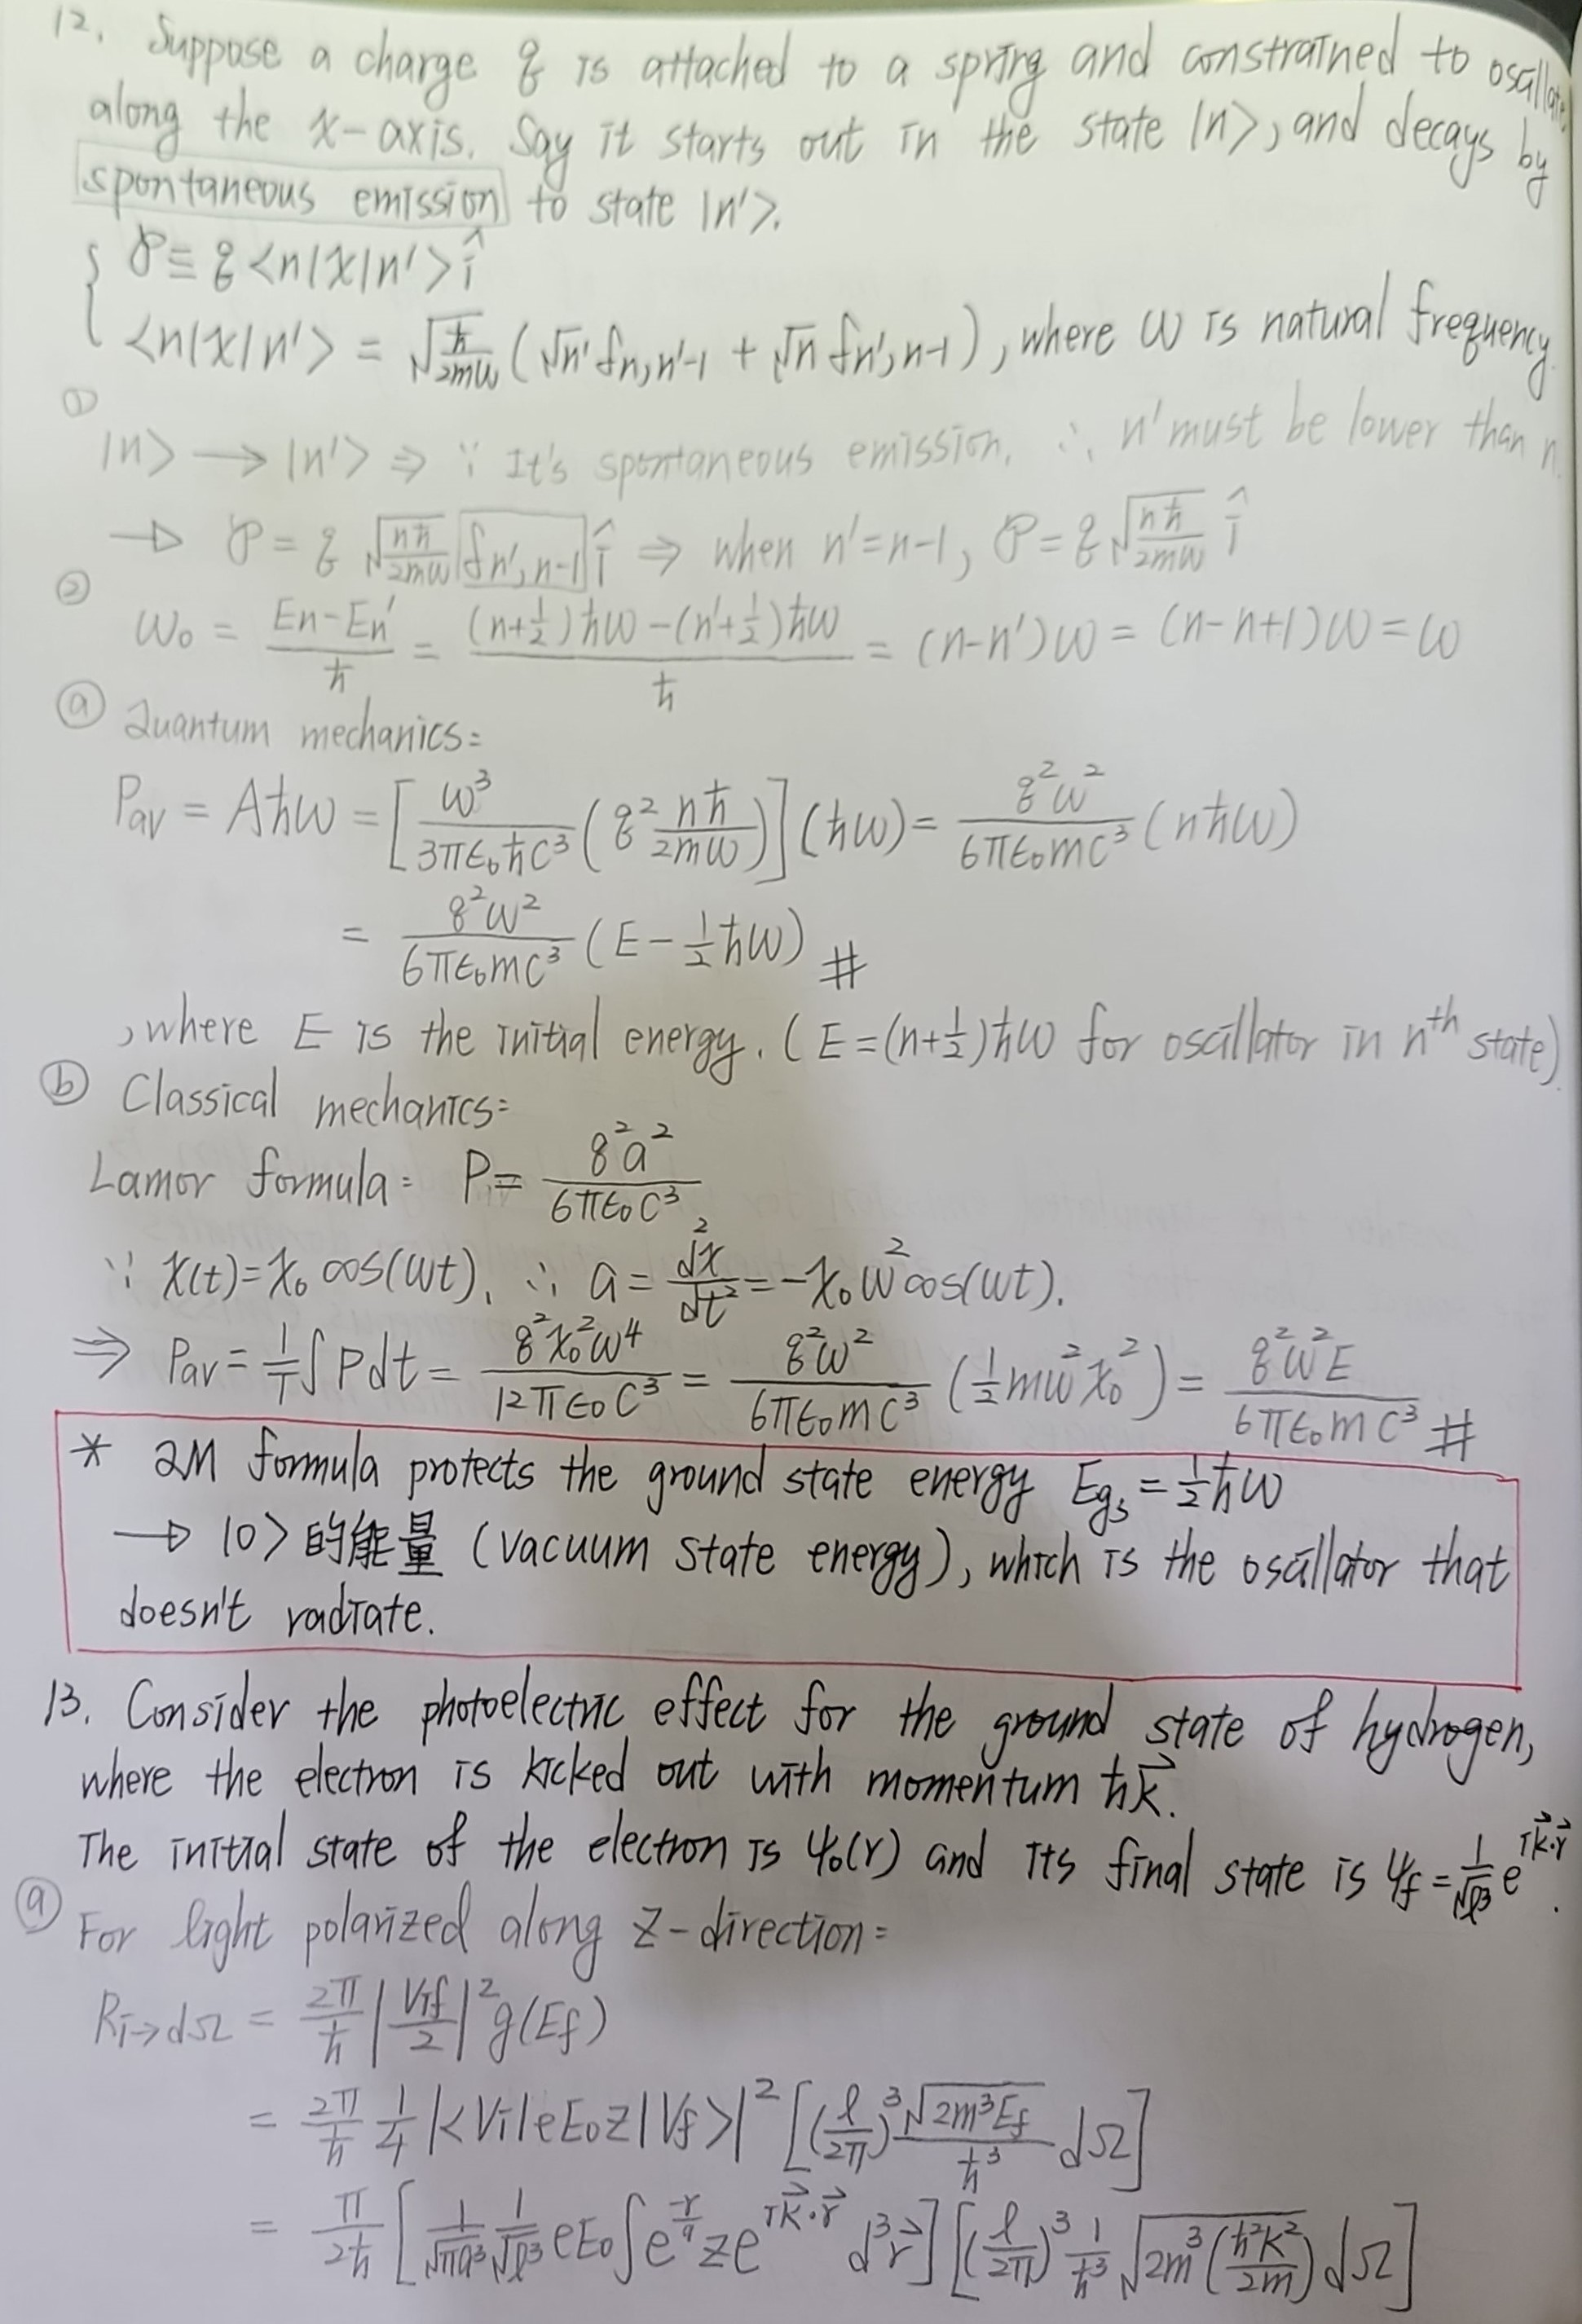 12. Suppose a charge q is attached to a spring and constrained to oscillate
along the x-axis. Say it starts out in the state |n>, and decays by
spontaneous emission to state |n'>.
℘ ≡ q<n|x|n'>î
<n|x|n'> = √(ħ/2mω) (√n' δn,n'-1 + √n δn',n-1), where ω is natural frequency.
①
|n> → |n'> ⇒ ∵ It's spontaneous emission. ∴ n' must be lower than n.
→ ℘ = q √(nħ/2mω) δn',n-1 î ⇒ when n'=n-1, ℘ = q √(nħ/2mω) î
②
ω₀ = (En-En')/ħ = ((n+1/2)ħω-(n'+1/2)ħω)/ħ = (n-n')ω = (n-n+1)ω = ω
ⓐ Quantum mechanics:
Pav = Aħω = [ω³/(3πε₀ħc³) (q² nħ/2mω)] (ħω) = q²ω²/(6πε₀mc³) (nħω)
= q²ω²/(6πε₀mc³) (E - 1/2 ħω) #
, where E is the initial energy. (E = (n+1/2)ħω for oscillator in nth state)
ⓑ Classical mechanics:
Lamor formula: P = q²a²/(6πε₀c³)
∵ x(t) = x₀ cos(ωt), ∴ a = d²x/dt² = -x₀ω²cos(ωt).
⇒ Pav = 1/T ∫Pdt = q²x₀²ω⁴/(12πε₀c³) = q²ω²/(6πε₀mc³) (1/2 mω²x₀²) = q²ω²E/(6πε₀mc³) #
* QM formula protects the ground state energy Egs = 1/2 ħω
→ |0>的能量 (vacuum state energy), which is the oscillator that
doesn't radiate.
13. Consider the photoelectric effect for the ground state of hydrogen,
where the electron is kicked out with momentum ħk⃗.
The initial state of the electron is ψ₀(r) and its final state is ψf = 1/√l³ e^(ik⃗·r⃗).
ⓐ For light polarized along z-direction:
Ri→dΩ = 2π/ħ |Vif/2|² g(Ef)
= 2π/ħ 1/4 |<Vi|eE₀z|Vf>|² [(l/2π)³ √(2m³Ef)/ħ³ dΩ]
= π/2ħ [1/√(πa³) 1/√l³ eE₀ ∫e^(-r/a) z e^(ik⃗·r⃗) d³r⃗] [(l/2π)³ 1/ħ³ √(2m³(ħ²k²/2m)) dΩ]